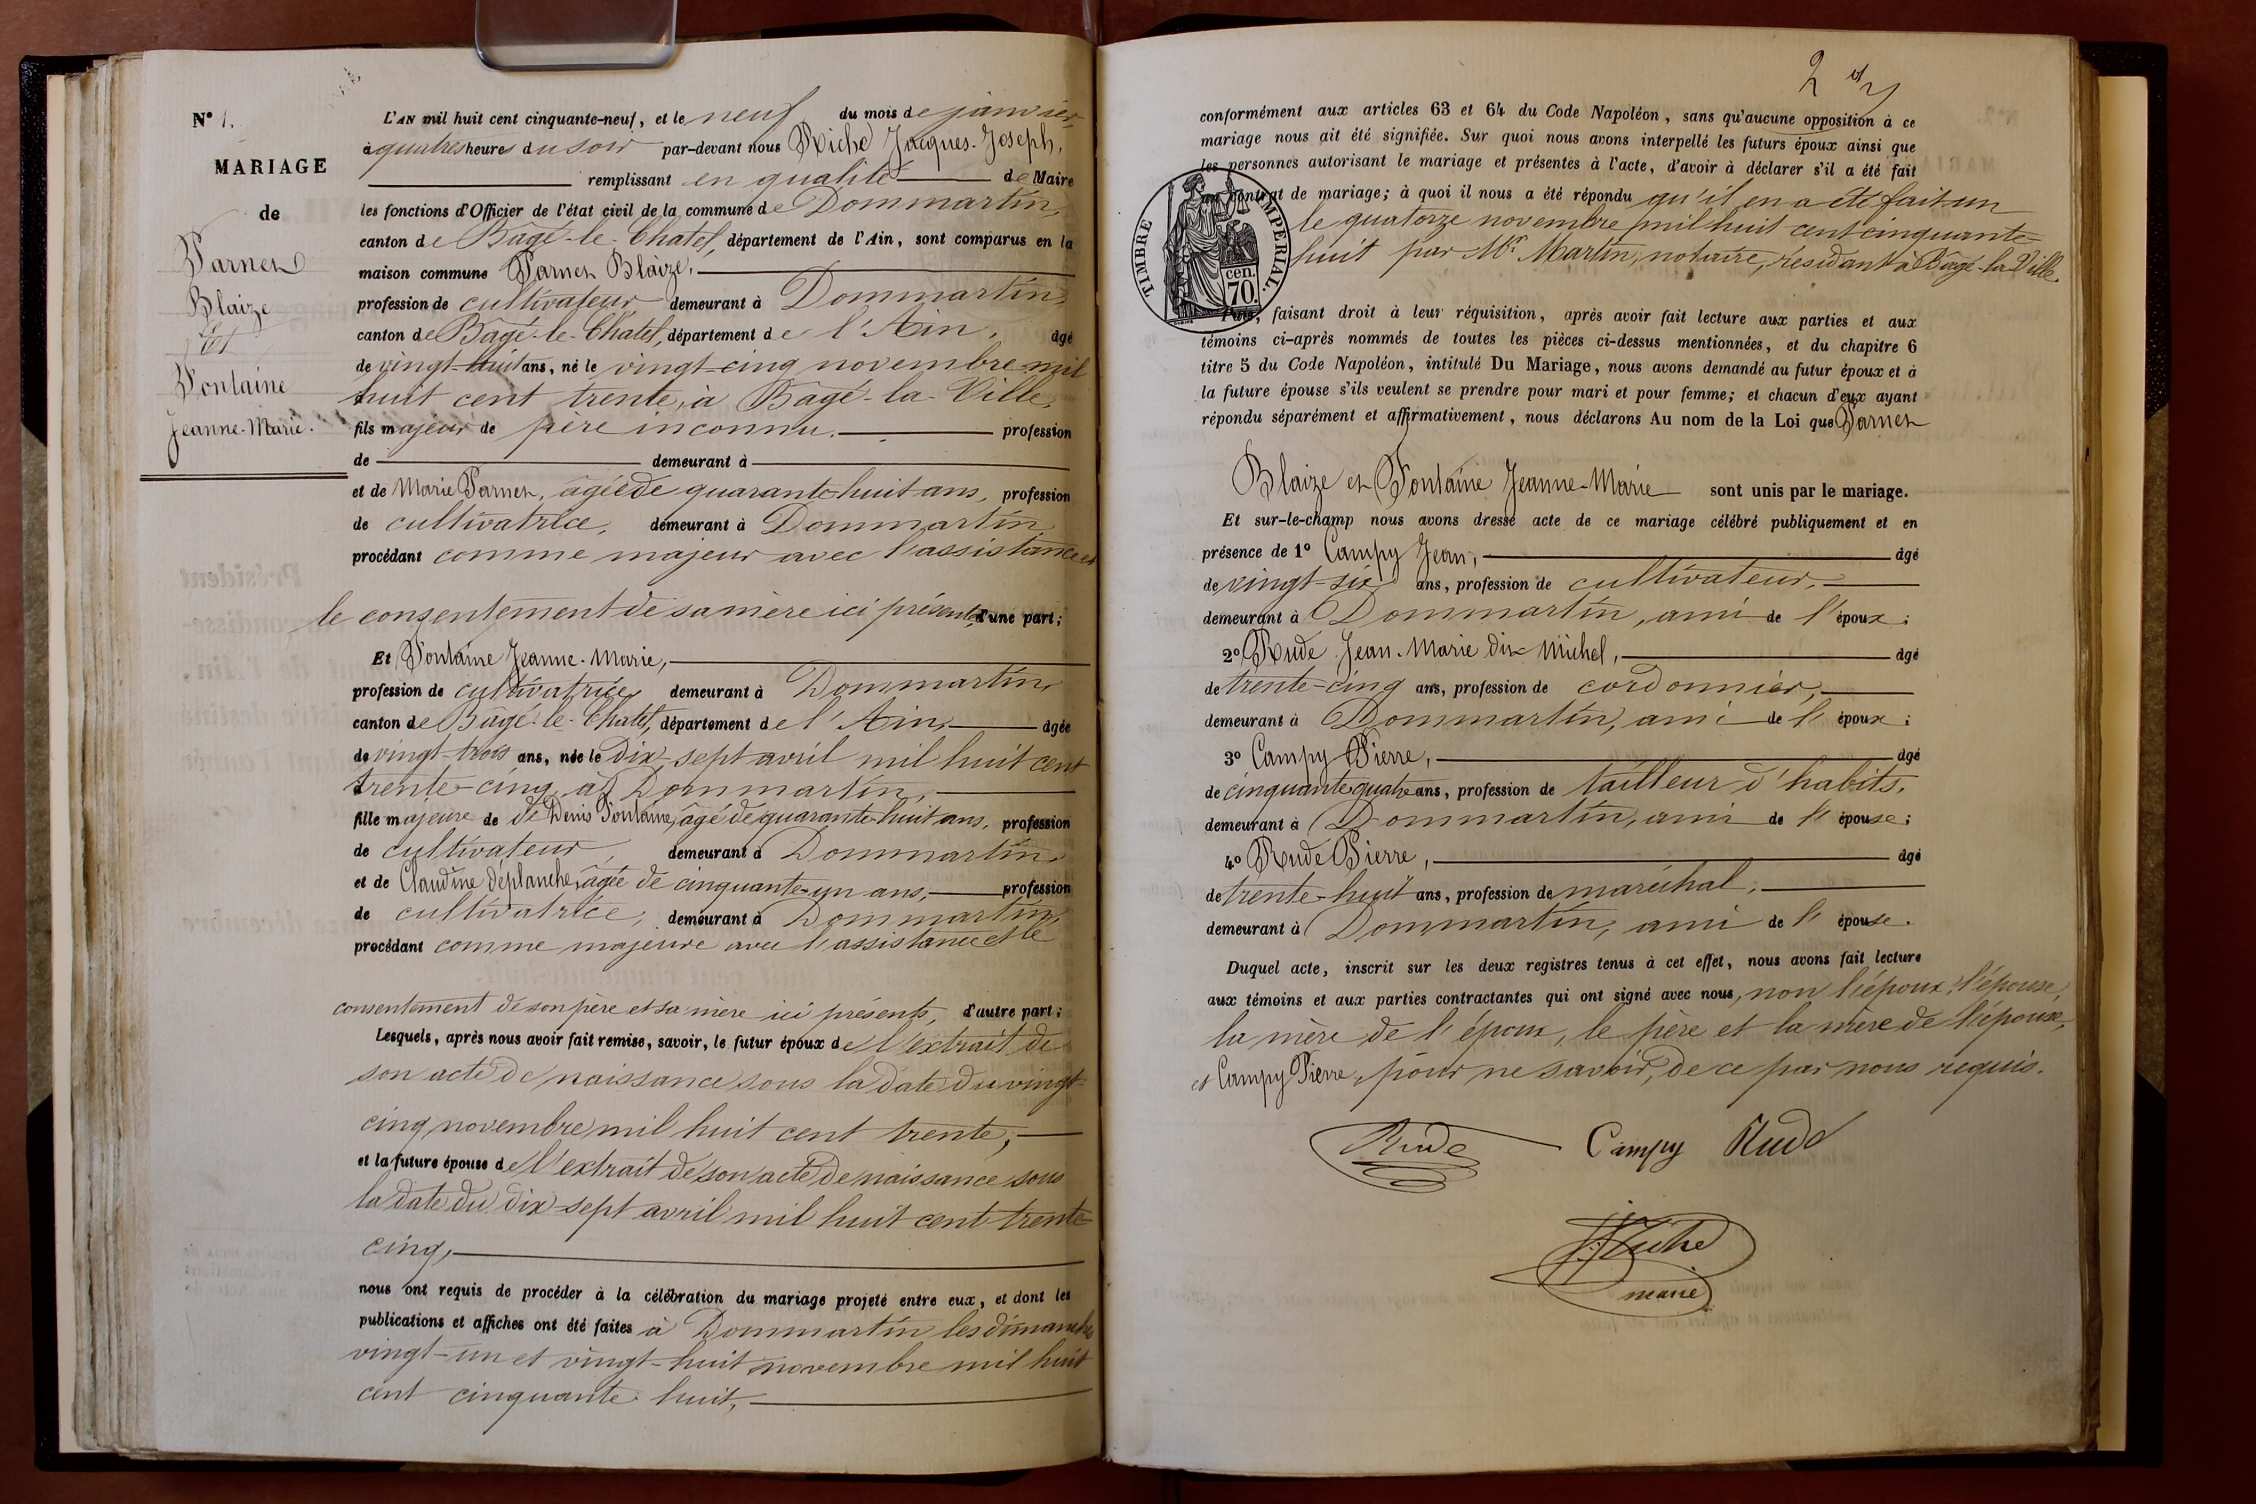 N° 1.
MARIAGE
de
Parnet
Blaize
Et
Fontaine
Jeanne-Marie.
L'AN mil huit cent cinquante-neuf, et le neuf du mois de janvier,
à quatres heures du soir par-devant nous Riche Jacques-Joseph,
remplissant en qualité de Maire
les fonctions d'Officier de l'état civil de la commune de Dommartin,
canton de Bâgé-le-Chatel, département de l'Ain, sont comparus en la
maison commune Parnet Blaize,
profession de cultivateur demeurant à Dommartin,
canton de Bâgé-le-Chatel, département de l'Ain, âgé
de vingt-huit ans, né le vingt-cinq novembre mil
huit cent trente, à Bâgé-la-Ville,
fils majeur de père inconnu. profession
de demeurant à
et de Marie Parnet, âgée de quarante-huit ans, profession
de cultivatrice, demeurant à Dommartin
procédant comme majeur avec l'assistance et
le consentement de sa mère ici présente, d'une part;
Et Fontaine Jeanne-Marie,
profession de cultivatrice demeurant à Dommartin,
canton de Bâgé-le-Chatel, département de l'Ain, âgée
de vingt-trois ans, née le dix-sept avril mil huit cent
trente-cinq à Dommartin,
fille majeure de de Denis Fontaine, âgé de quarante-huit ans, profession
de cultivateur, demeurant à Dommartin
et de Claudine Déplanche, âgée de cinquante-un ans, profession
de cultivatrice, demeurant à Dommartin,
procédant comme majeure avec l'assistance et le
consentement de son père et sa mère ici présents, d'autre part;
Lesquels, après nous avoir fait remise, savoir, le futur époux de l'extrait de
son acte de naissance sous la date du vingt-
cinq novembre mil huit cent trente,
et la future épouse de l'extrait de son acte de naissance sous
la date du dix-sept avril mil huit cent trente-
cinq,
nous ont requis de procéder à la célébration du mariage projeté entre eux, et dont les
publications et affiches ont été faites à Dommartin les dimanches
vingt-un et vingt-huit novembre mil huit
cent cinquante-huit,
2
conformément aux articles 63 et 64 du Code Napoléon, sans qu'aucune opposition à ce
mariage nous ait été signifiée. Sur quoi nous avons interpellé les futurs époux ainsi que
les personnes autorisant le mariage et présentes à l'acte, d'avoir à déclarer s'il a été fait
un contrat de mariage; à quoi il nous a été répondu qu'il en a été fait un
le quatorze novembre mil huit cent cinquante-
huit par Mr. Martin, notaire, résidant à Bâgé-la-Ville.
TIMBRE IMPERIAL.
cen.
70.
Puis, faisant droit à leur réquisition, après avoir fait lecture aux parties et aux
témoins ci-après nommés de toutes les pièces ci-dessus mentionnées, et du chapitre 6
titre 5 du Code Napoléon, intitulé Du Mariage, nous avons demandé au futur époux et à
la future épouse s'ils veulent se prendre pour mari et pour femme; et chacun d'eux ayant
répondu séparément et affirmativement, nous déclarons Au nom de la Loi que Parnet
Blaize et Fontaine Jeanne-Marie sont unis par le mariage.
Et sur-le-champ nous avons dressé acte de ce mariage célébré publiquement et en
présence de 1° Campy Jean, âgé
de vingt-six ans, profession de cultivateur,
demeurant à Dommartin, ami de l'époux;
2° Rude Jean-Marie dit Michel, âgé
de trente-cinq ans, profession de cordonnier,
demeurant à Dommartin, ami de l'époux;
3° Campy Pierre, âgé
de cinquante quatre ans, profession de tailleur d'habits,
demeurant à Dommartin, ami de l'épouse;
4° Rude Pierre, âgé
de trente-huit ans, profession de maréchal,
demeurant à Dommartin, ami de l'épouse.
Duquel acte, inscrit sur les deux registres tenus à cet effet, nous avons fait lecture
aux témoins et aux parties contractantes qui ont signé avec nous, non l'époux, l'épouse,
la mère de l'époux, le père et la mère de l'épouse,
et Campy Pierre, pour ne savoir, de ce par nous requis.
Rude Campy Rude
J. J. Riche
maire